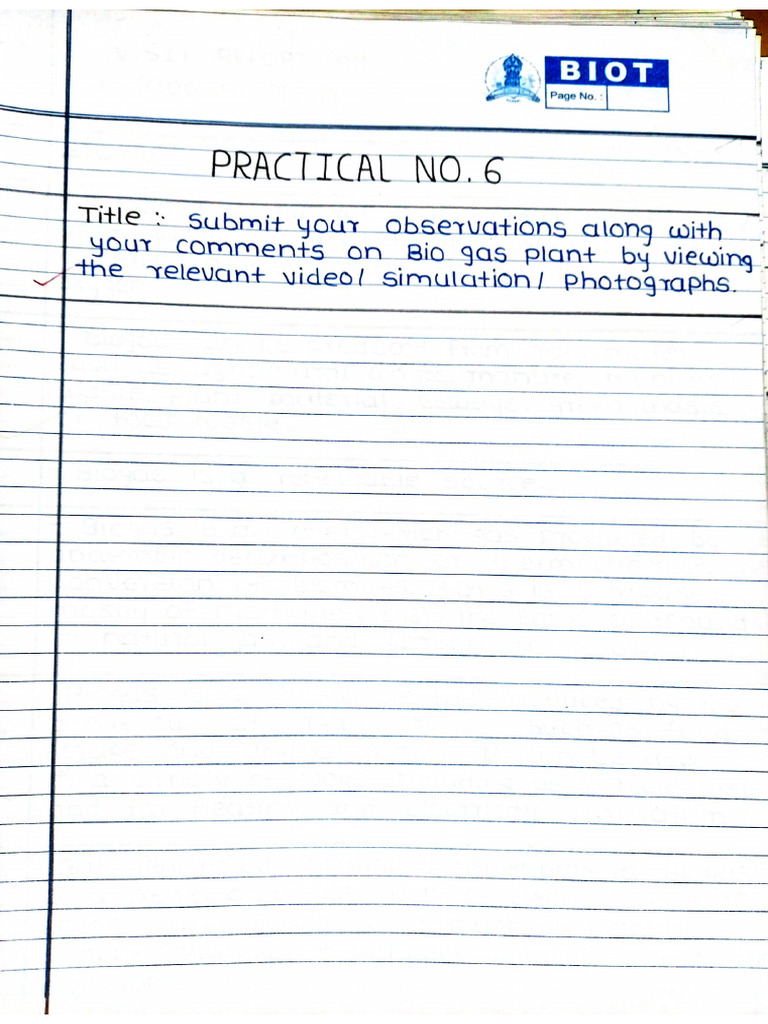 BIOT
Page No. :
PRACTICAL NO. 6
Title :- submit your observations along with
your comments on Bio gas plant by viewing
the relevant video/ simulation/ photographs.